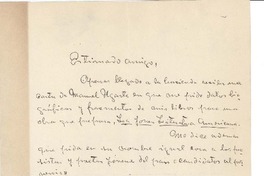 Estimado amigo:
Apenas llegado a la
carta de Manuel Ugarte en que me pide datos bio
gráficos y fragmentos de mis libros para una
obra que prepara: Los Jovenes Literatos Americanos.
Me dice además
que pida en su nombre igual cosa a los pro
sistas y poetas jóvenes del país: candidatos al pa